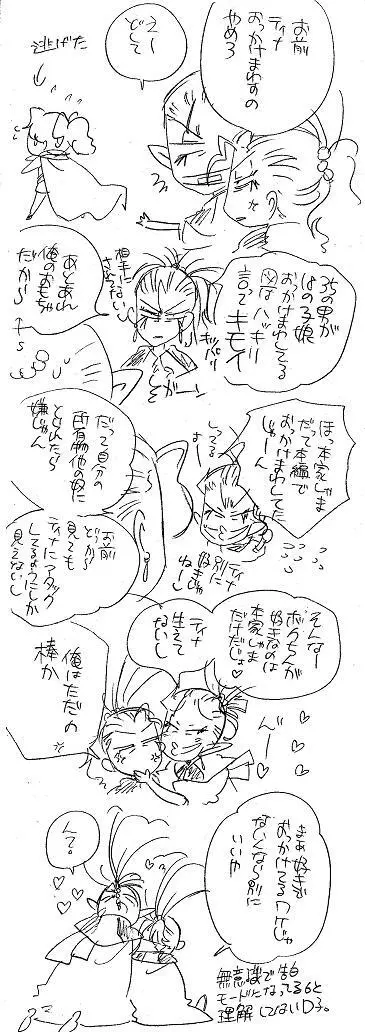 お前
ティナ
おっかけまわすの
やめろ
えー
どして
逃げた
35の男が
18の子娘
おっかけまわしてる
図なハッキリ
言ってキモイ
キッパリ
ガーン
相手にない
あとあれ
俺のおもちゃ
だから
ほっ本家しゃま
だって本編で
おっかけまわして
じゃーん
してる
よー
別にティナ
好きに
ねーし
だって自分の
所有物他の奴に
とられたら
嫌じゃん
お前
どっから
見ても
ティナにアタック
してるようにしか
見えないし
そんなー
ボクちんが
好きなのは
本家しゃま
だけだじょ♥
ティナ
生えて
ないし
俺はただの
棒か
んー
まあ好きで
おっかけてるワケじゃ
ないんなら別に
いいや
んで。
無意識で告白
モードになってる6と
理解してないD子。